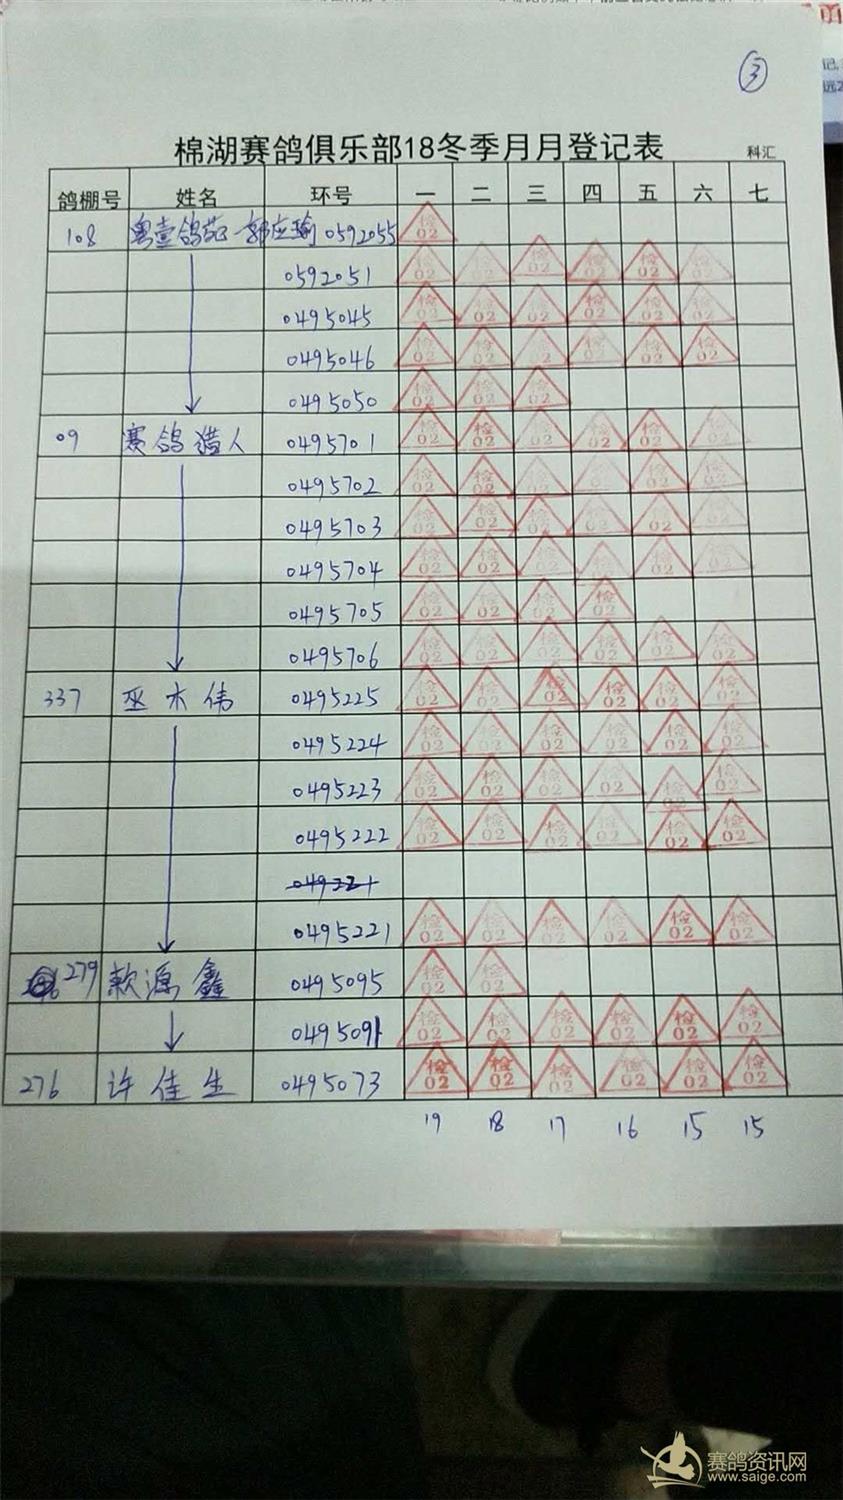 ③
棉湖赛鸽俱乐部18冬季月月登记表 科汇
鸽棚号 姓名 环号 一 二 三 四 五 六 七
108 粤壹鸽苑-郭应瑜 0592055 检02
0592051 检02 检02 检02 检02 检02 检02
0495045 检02 检02 检02 检02 检02 检02
0495046 检02 检02 检02 检02 检02 检02
0495050 检02 检02 检02
09 赛鸽猎人 0495701 检02 检02 检02 检02 检02 检02
0495702 检02 检02 检02 检02 检02 检02
0495703 检02 检02 检02 检02 检02 检02
0495704 检02 检02 检02 检02 检02 检02
0495705 检02 检02 检02 检02
0495706 检02 检02 检02 检02 检02 检02
337 巫木伟 0495225 检02 检02 检02 检02 检02 检02
0495224 检02 检02 检02 检02 检02 检02
0495223 检02 检02 检02 检02 检02 检02
0495222 检02 检02 检02 检02 检02 检02
0495221 检02 检02 检02 检02 检02 检02
279 源鑫 0495095 检02 检02
0495091 检02 检02 检02 检02 检02 检02
276 许佳生 0495073 检02 检02 检02 检02 检02 检02
19 18 17 16 15 15
赛鸽资讯网
www.saige.com